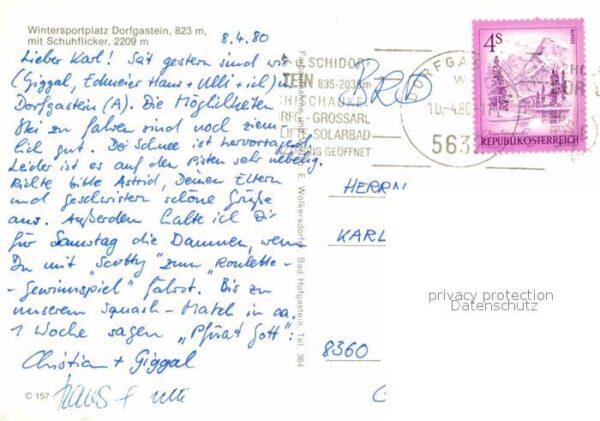 Wintersportplatz Dorfgastein, 823 m,
mit Schuhflicker, 2209 m
8.4.80
Lieber Karl! Seit gestern sind wir
(Giggal, Edmeier Hans + Ulli + ich) in
Dorfgastein (A). Die Möglichkeiten
Ski zu fahren sind noch ziem-
lich gut. Der Schnee ist hervorragend.
Leider ist es auf den Pisten sehr nebelig.
Richte bitte Astrid, Deinen Eltern
und Geschwistern schöne Grüße
aus. Außerdem halte ich Dir
für Samstag die Daumen, wenn
Du mit "Scotty" zum "Roulette-
Gewinnspiel" fährst. Bis zu
unserem Squash-Match in ca.
1 Woche sagen "Pfüat Gott":
Christian + Giggal
Hans + Ulli
C 157
E. Wolkersdorfer, Bad Hofgastein, Tel. 364
SCHIDORF
835-2033m
GROSSARL
SOLARBAD
GEÖFFNET
10.-4.80
563
4S
REPUBLIK ÖSTERREICH
BRD
HERRN
KARL
8360
privacy protection
Datenschutz